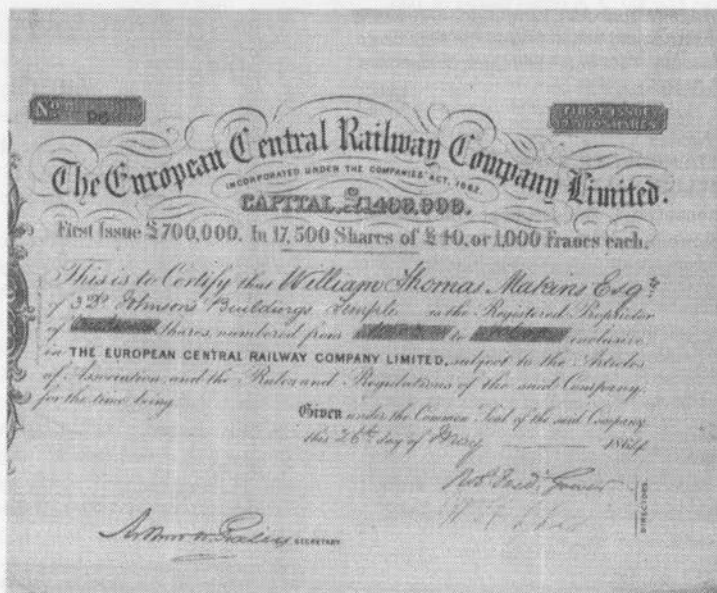 No
FIRST ISSUE
The European Central Railway Company Limited.
INCORPORATED UNDER THE COMPANIES' ACT, 1862.
CAPITAL, £1,400,000.
First Issue £700,000. In 17,500 Shares of £40, or 1,000 Francs each.
This is to Certify that William Thomas Makins Esqre
of 3 Dr Johnson's Buildings Temple is the Registered Proprietor
of Shares, numbered from to inclusive
in THE EUROPEAN CENTRAL RAILWAY COMPANY LIMITED, subject to the Articles
of Association and the Rules and Regulations of the said Company,
for the time being
Given under the Common Seal of the said Company
this 26th day of May 1864
DIRECTORS.
SECRETARY